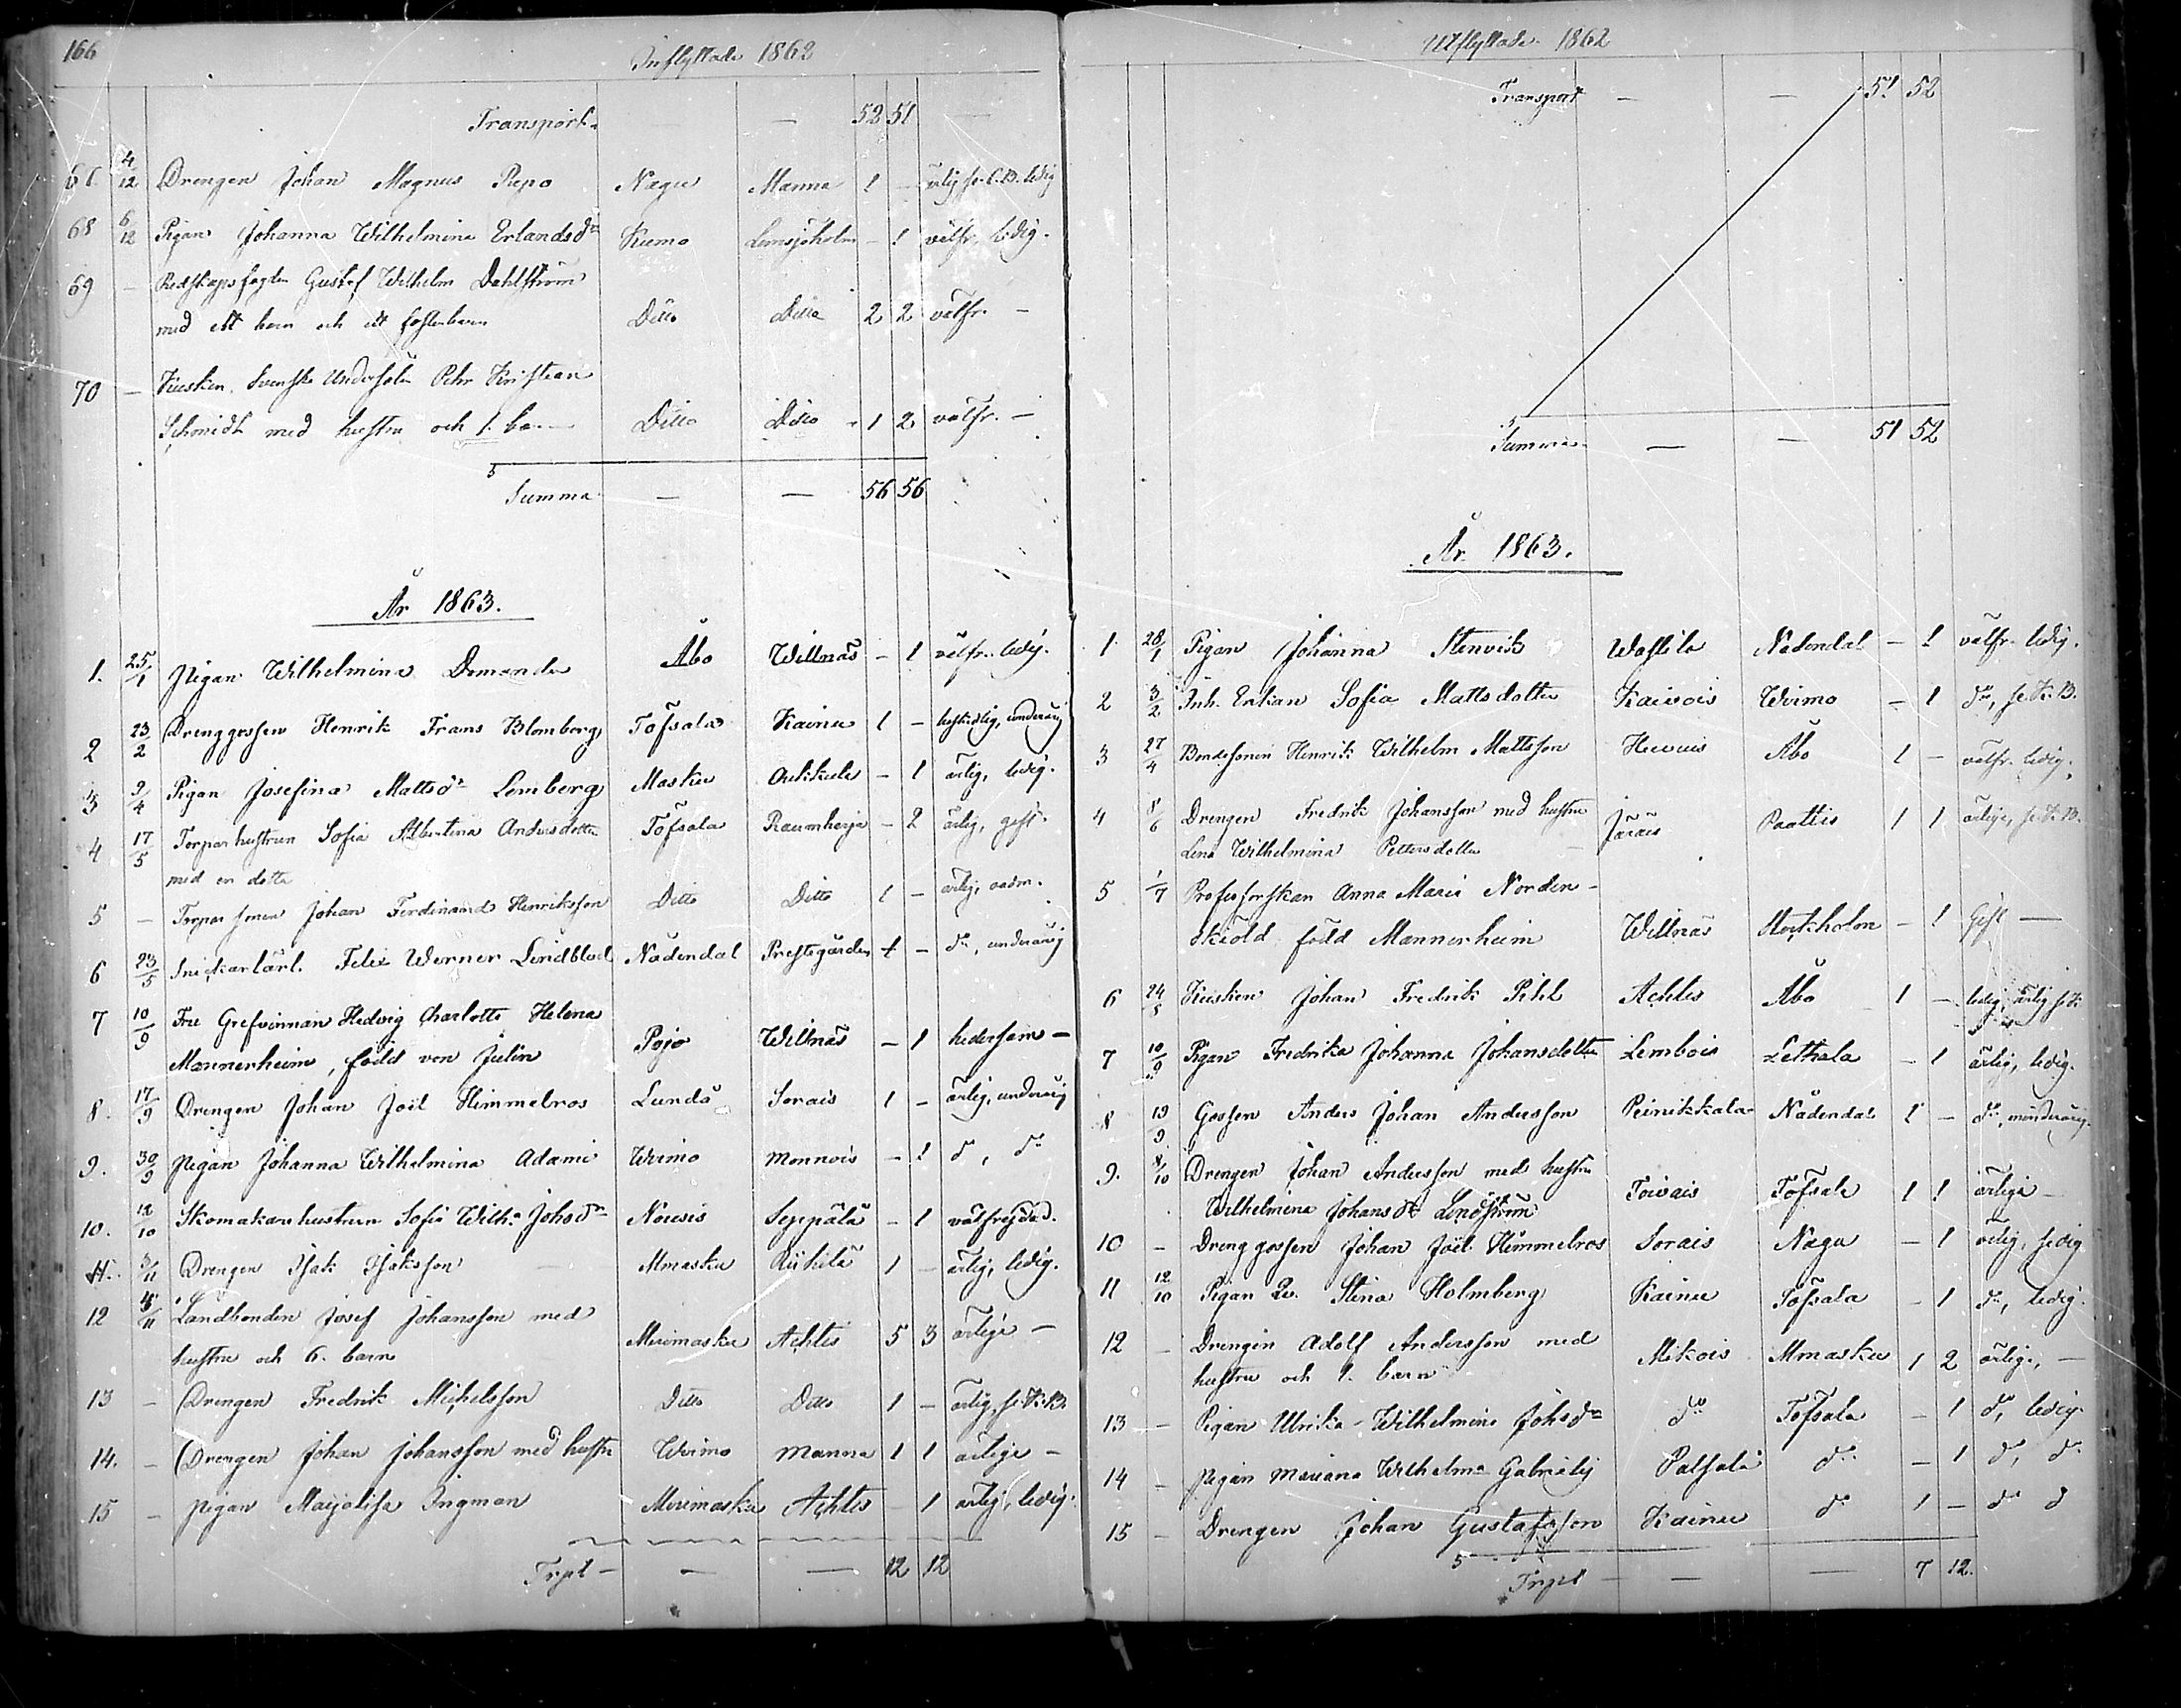 166
Inflyttade 1862
Transport 52 51
67 4/12 Drengen Johan Magnus Pepo Nagu Manna 1 -
68 6/12 Pigan Johanna Wilhelmina Erlandsdr Kumo Lemsjöholm - 1 välfr. ledig.
69 - Gustaf Wilhelm Dahlström
med ett barn och ett fosterbarn Ditto Ditto 2 2 välfr. -
70 - Kusken Svenske Undersåten Petr Kristian
Schmidt med hustru och 1. barn Ditto Ditto 1 2 välfr. -
Summa - - 56 56
År 1863.
1. 25/1 Pigan Wilhelmina Åbo Willnäs - 1 välfr. ledig.
2 23/2 Drenggossen Henrik Frans Blomberg Töfsala Kainu 1 - underårig
3 9/4 Pigan Josefina Mattsdr Lemberg Masku - 1 ärlig, ledig.
4 17/5 Torparhustrun Sofia Albertina Andersdotter Töfsala - 2 ärlig, gift.
med en dotter
5 - Torparsonen Johan Ferdinand Henriksson Ditto Ditto 1 - ärlig,
6 23/5 Snickarlärl. Felix Werner Lindblad Nådendal Prestgården 1 - do, underårig
7 10/9 Fru Grefvinnan Hedvig Charlotta Helena
Mannerheim, född von Julin Pojo Willnäs - 1 hedersam -
8. 17/9 Drengen Johan Joël Himmelros Lundo Sorais 1 - ärlig, underårig
9. 30/9 Pigan Johanna Wilhelmina Adami Wirmo Monnois - 1 do, do
10. 12/10 Skomakarehustrun Sofia Wilh:a Johsdr Nousis Seppälä - 1 välfrejdad.
11. 3/11 Drengen Isak Isaksson Mmasku 1 - ärlig, ledig.
12 4/11 Landbonden Josef Johansson med
hustru och 6. barn Merimasku Achtis 5 3 ärlige -
13 - Drengen Fredrik Michelsson Ditto Ditto 1 - ärlig, se K.B.
14. - Drengen Johan Johansson med hustru Wirmo Manna 1 1 ärlige -
15 - Pigan Majalisa Ingman Merimasku Achtis - 1 ärlig, ledig.
Trpt - - - 12 12
Utflyttade 1862
Transport - - 51 52
Summa - - 51 52
År 1863.
1. 28/1 Pigan Johanna Stenvik Wastila Nådendal - 1 välfr. ledig.
2 3/2 Inh. Enkan Sofia Mattsdotter Kaivois Wirmo - 1 do, se K.B.
3 27/4 Bondesonen Henrik Wilhelm Mattsson Åbo 1 - välfr. ledig.
4 8/6 Drengen Fredrik Johansson med hustru
Lena Wilhelmina Pettersdotter Järäis Paattis 1 1 ärlige, se K.B.
5 1/7 Professorskan Anna Maria Norden-
skiöld född Mannerheim Willnäs Stockholm - 1 Gift -
6 24/8 Kusken Johan Fredrik Pihl Achtis Åbo 1 - ledig, ärlig
7 10/9 Pigan Fredrika Johanna Johansdotter Lembois Lethala - 1 ärlig, ledig.
8 19/9 Gossen Anders Johan Andersson Peinikkala Nådendal 1 - do, minderårig.
9. 8/10 Drengen Johan Andersson med hustru
Wilhelmina Johansdr Lindström Toivais Töfsala 1 1 ärlige -
10 - Drenggossen Johan Joël Himmelros Sorais Nagu - 1 ärlig, ledig
11 12/10 Pigan Stina Holmberg Kainu Töfsala - 1 do, ledig.
12 - Drengen Adolf Andersson med
hustru och 1. barn Mikois Mmasku 1 2 ärlige, -
13 - Pigan Ulrika Wilhelmina Johsdr do Töfsala - 1 do, ledig.
14 - Pigan Mariana Wilhelmina do - 1 do, do
15 - Drengen Johan Gustafsson Kainu do 1 - do do
Trpt - - - 7 12.